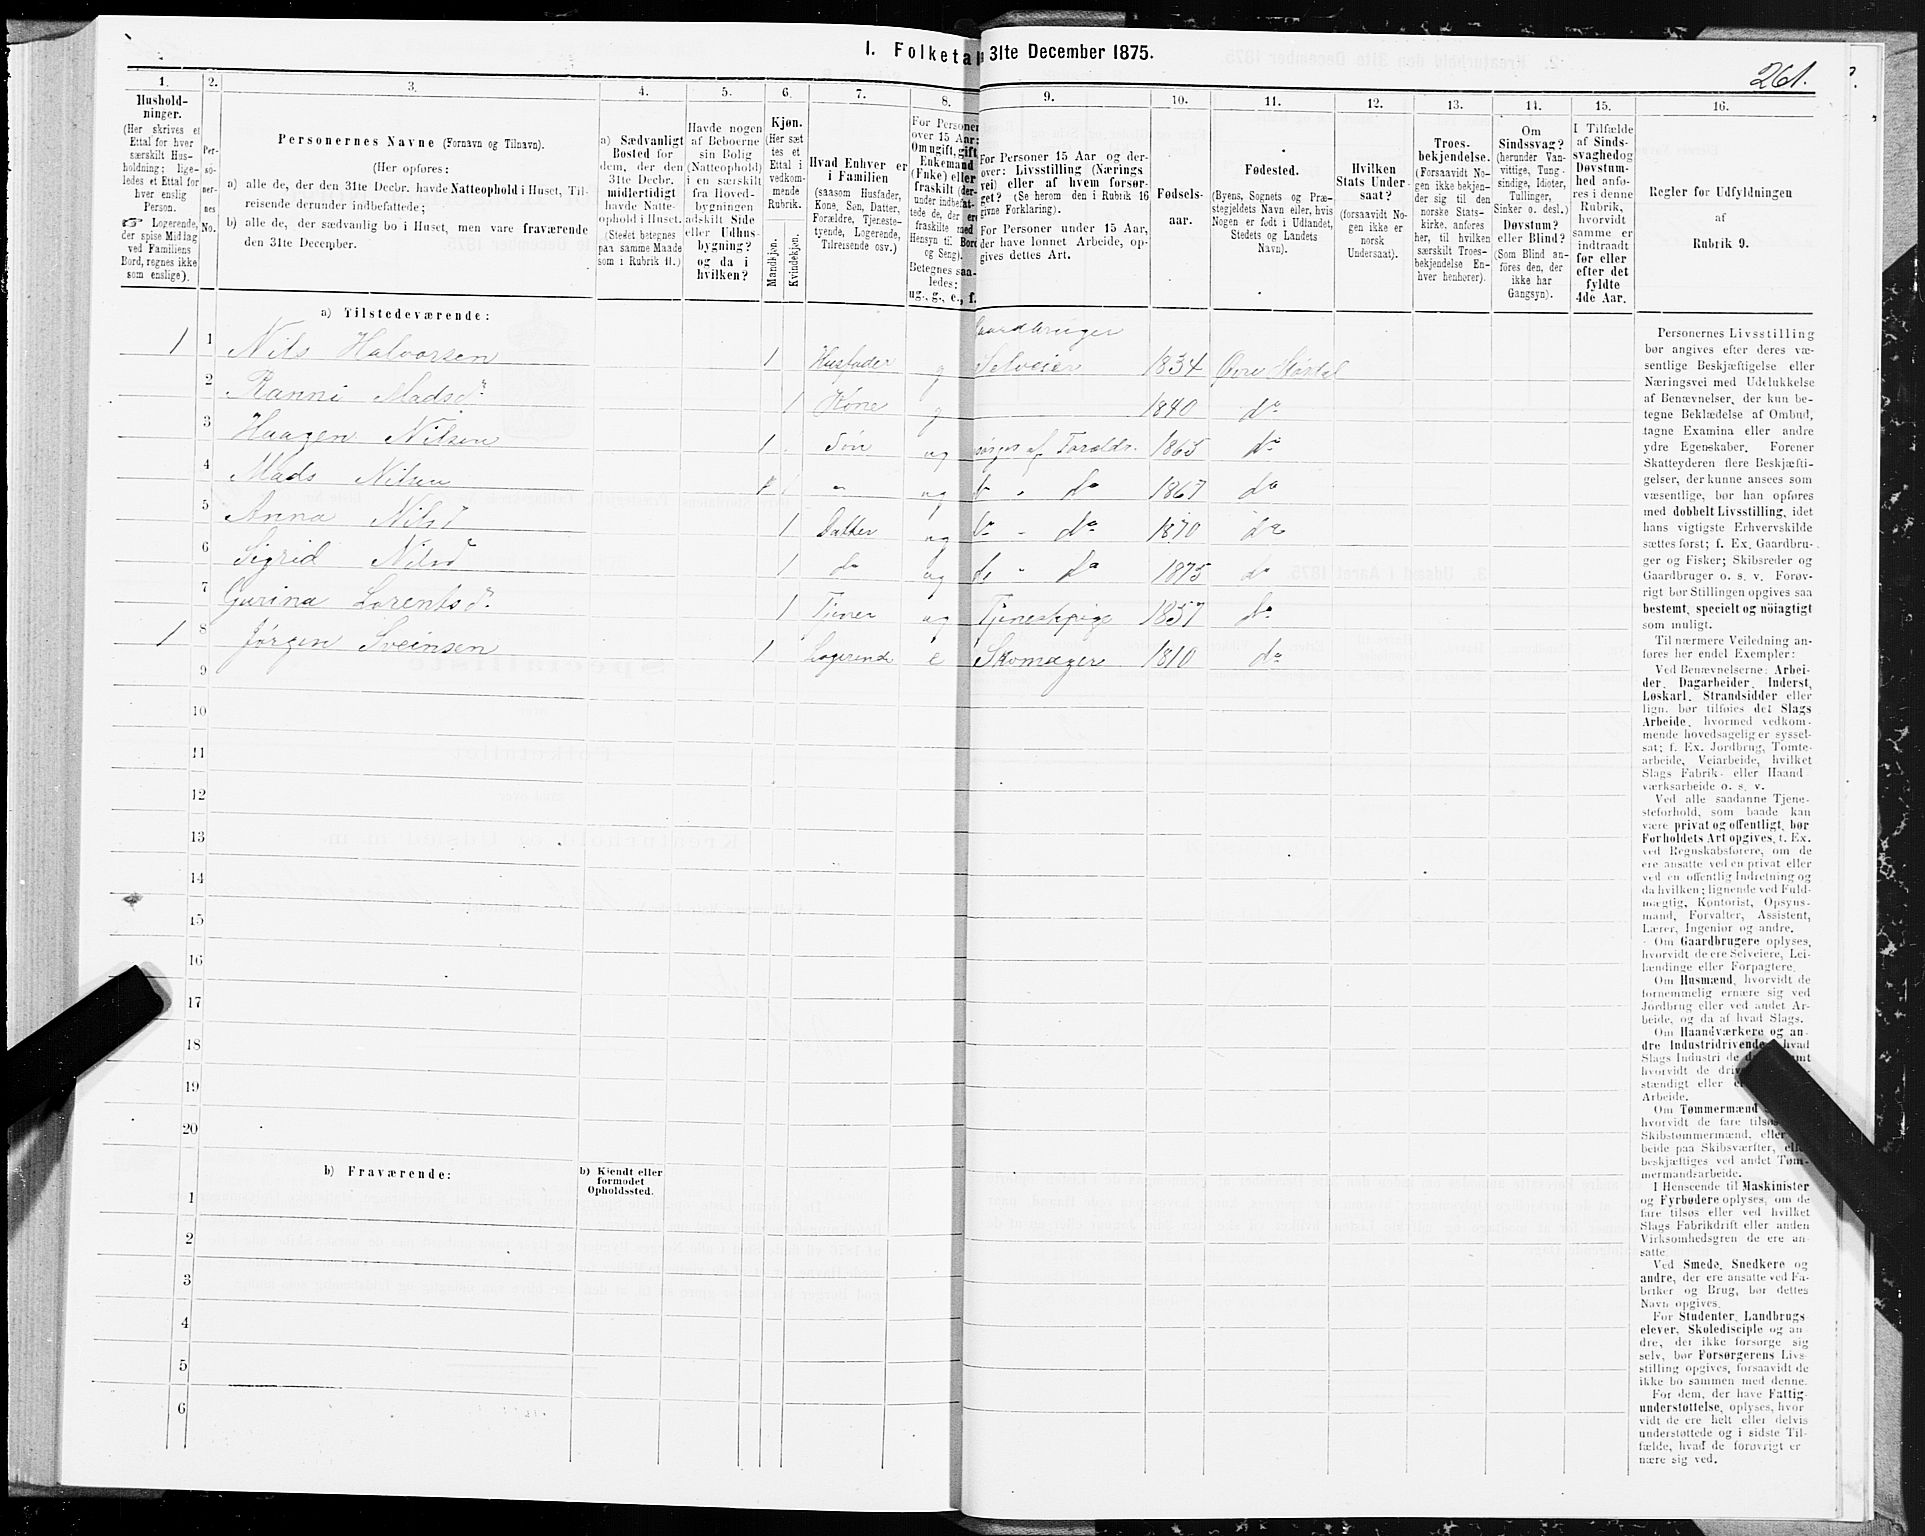 I. Folketa 31te December 1875.
261.
1. 2. 3. 4. 5. 6. 7. 8. 9. 10. 11. 12. 13. 14. 15. 16.
Hushold-
ninger.
(Her skrives et
Ettal for hver
særskilt Hus-
holdning; lige-
ledes et Ettal for
hver enslig
Person.
☞ Logerende,
der spise Middag
ved Familiens
Bord, regnes ikke
som enslige).
Per-
so-
ner-
nes
No.
Personernes Navne (Fornavn og Tilnavn).
(Her opføres:
a) alle de, der den 31te Decbr. havde Natteophold i Huset, Til-
reisende derunder indbefattede;
b) alle de, der sædvanlig bo i Huset, men vare fraværende
den 31te December.
a) Sædvanligt
Bosted for
dem, der den
31te Decbr.
midlertidigt
havde Natte-
ophold i Huset.
(Stedet betegnes
paa samme Maade
som i Rubrik 11.)
Havde nogen
af Beboerne
sin Bolig
(Natteophold)
i en særskilt
fra Hoved-
bygningen
adskilt Side
eller Udhus-
bygning?
og da i
hvilken?
Kjøn.
(Her sæt
tes et
Ettal i
vedkom-
mende
Rubrik.
Mandkjøn.
Kvindekjøn.
Hvad Enhver er
i Familien
(saasom Husfader,
Kone, Søn, Datter,
Forældre, Tjeneste-
tyende, Logerende,
Tilreisende osv.)
For Personer
over 15 Aar:
Om ugift, gift,
Enkemand
(Enke) eller
fraskilt (der-
under indbefat-
tede de, der ere
fraskilte med
Hensyn til Bord
og Seng).
Betegnes saa-
ledes:
ug., g., e., f.
For Personer 15 Aar og der-
over: Livsstilling (Nærings
vei) eller af hvem forsør-
get? (Se herom den i Rubrik 16
givne Forklaring).
For Personer under 15 Aar,
der have lønnet Arbeide, op-
gives dettes Art.
Fødsels-
aar.
Fødested.
(Byens, Sognets og Præ-
stegjeldets Navn eller, hvis
Nogen er født i Udlandet,
Stedets og Landets
Navn).
Hvilken
Stats Under-
saat?
(forsaavidt No-
gen ikke er
norsk
Undersaat).
Troes-
bekjendelse.
(Forsaavidt No-
gen ikke bekjen-
der sig til den
norske Stats-
kirke, anføres
her, til hvilken
særskilt Troes-
bekjendelse En-
hver henhører).
Om
Sindssvag?
(herunder Van-
vittige, Tung-
sindige, Idioter,
Tullinger,
Sinker o. desl.)
Døvstum?
eller Blind?
(Som Blind an-
føres den, der
ikke har
Gangsyn).
I Tilfælde
af Sinds-
svaghed og
Døvstum-
hed anfø-
res i denne
Rubrik,
hvorvidt
samme er
indtraadt
før eller
efter det
fyldte
4de Aar.
Regler for Udfyldningen
af
Rubrik 9.
a) Tilstedeværende:
1 1 Nils Halvorsen 1 Husfader g Gaardbruger Selveier 1834 Øvre Størdal
2 Ranni Madsd. 1 Kone g 1840 do
3 Haagen Nilsen 1 Søn ug sørges af Foreldr. 1865 do
4 Mads Nilsen 1 " ug do " do 1867 do
5 Anna Nilsd 1 Datter ug do " do 1870 do
6 Sigrid Nilsd 1 do ug do " do 1875 do
7 Gurina Lorentsd. 1 Tjener ug Tjenestepige 1857 do
1 8 Jørgen Sveinsen 1 Logerende e Skomager 1810 do
9
10
11
12
13
14
15
16
17
18
19
20
b) Fraværende:
b) Kjendt eller
formodet
Opholdssted.
1
2
3
4
5
6
Personernes Livsstilling
bør angives efter deres væ-
sentlige Beskjæftigelse eller
Næringsvei med Udelukkelse
af Benævnelser, der kun be-
tegne Beklædelse af Ombud,
tagne Examina eller andre
ydre Egenskaber. Forener
Skatteyderen flere Beskjæfti-
gelser, der kunne ansees som
væsentlige, bør han opføres
med dobbelt Livsstilling, idet
hans vigtigste Erhvervskilde
sættes først; f. Ex. Gaardbru-
ger og Fisker; Skibsreder og
Gaardbruger o. s. v. Forøv-
rigt bør Stillingen opgives saa
bestemt, specielt og nöiagtigt
som muligt.
Til nærmere Veiledning an-
føres her endel Exempler:
Ved Benævnelserne: Arbei-
der, Dagarbeider, Inderst,
Løskarl, Strandsidder eller
lign. bør tilføies det Slags
Arbeide, hvormed vedkom-
mende hovedsagelig er syssel-
sat; f. Ex. Jordbrug, Tomte-
arbeide, Veiarbeide, hvilket
Slags Fabrik- eller Haand-
værksarbeide o. s. v.
Ved alle saadanne Tjene-
steforhold, som baade kan
være privat og offentligt, bør
Forholdets Art opgives, t. Ex.
ved Regnskabsførere, om de
ere ansatte ved en privat eller
ved en offentlig Indretning og
da hvilken; lignende ved Fuld-
mægtig, Kontorist, Opsyns-
mand, Forvalter, Assistent,
Lærer, Ingeniør og andre.
Om Gaardbrugere oplyses,
hvorvidt de ere Selveiere, Lei-
lændinge eller Forpagtere.
Om Husmænd, hvorvidt de
fornemmelig ernære sig ved
Jordbrug eller ved andet Ar-
beide, og da af hvad Slags.
Om Haandværkere og an-
dre Industridrivende, hvad
Slags Industri de
hvorvidt de
stændigt eller
Arbeide.
Om Tømmermænd
hvorvidt de fare tilsøs
Skibstømmermænd, eller
beide paa Skibsværfter,
beskjæftiges ved andet Tøm-
mermandsarbeide.
I Henseende til Maskinister
og Fyrbødere oplyses, om de
fare tilsøs eller ved hvilket
Slags Fabrikdrift eller anden
Virksomhedsgren de ere an-
satte.
Ved Smede, Snedkere og
andre, der ere ansatte ved Fa-
briker og Brug, bør dettes
Navn opgives.
For Studenter, Landbrugs
elever, Skoledisciple og an
dre, der ikke forsørge sig
selv, bør Forsørgerens Livs-
stilling opgives, forsaavidt de
ikke bo sammen med denne.
For dem, der have Fattig-
understøttelse, oplyses, hvor
vidt de ere helt eller delvis
understøttede og i sidste Til-
fælde, hvad de forøvrigt er
nære sig ved.